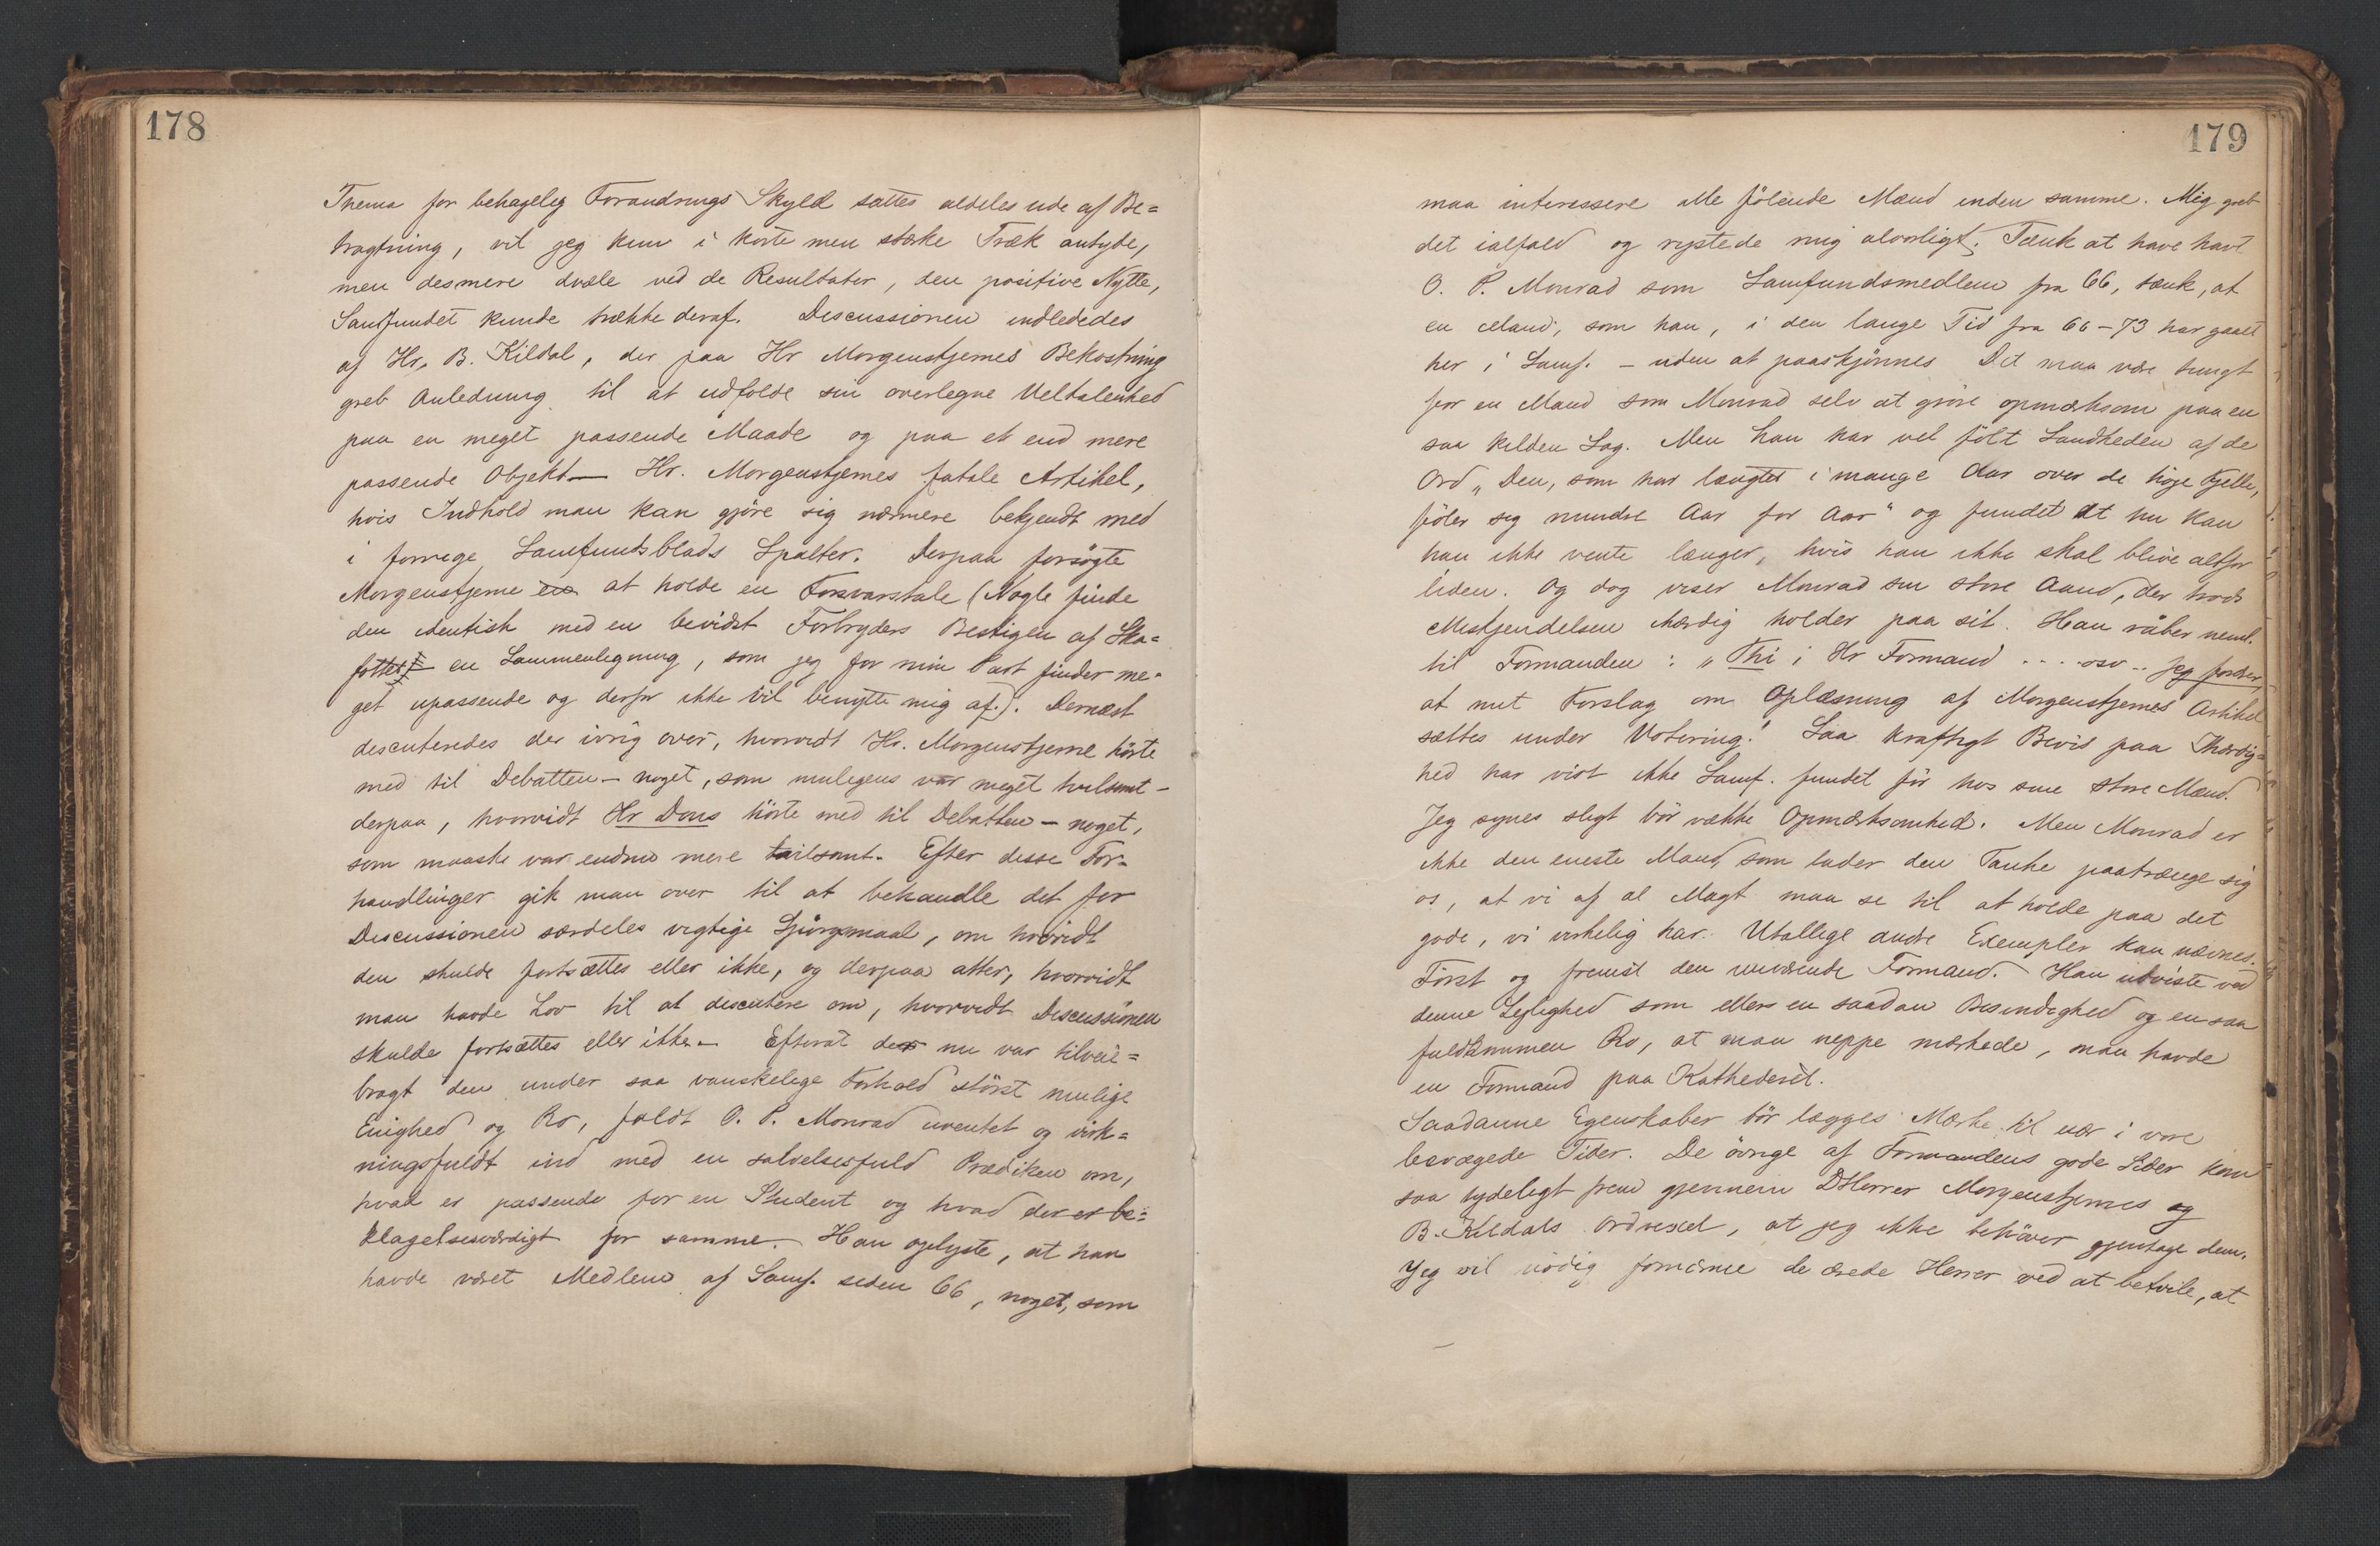 178
Thema for behagelig Forandrings Skyld sattes aldeles ude af Be=
tragtning, vil jeg kun i korte men stærke Træk antyde,
men desmere dvæle ved de Resultater, den positive Nytte,
Samfundet kunde trække deraf. Discussionen indlededes
af Hr. B. Kildal, der paa Hr Morgenstjernes Bekostning
greb Anledning til at udfolde sin overlegne Veltalenhed
paa en meget passende Maade og paa et end mere
passende Objekt — Hr. Morgenstjernes fatale Artikel,
hvis Indhold man kan gjöre sig nærmere bekjendt med
i forrige Samfundsblads Spalter. Derpaa forsögte
Morgenstjerne en at holde en Forsvarstale (Nogle finde
den identisk med en bevidst Forbryders Bestigen af Ska=
fottet) en Sammenligning, som jeg for min Part finder me=
get upassende og derfor ikke vil benytte mig af.). Dernæst
discuteredes der ivrig over, hvorvidt Hr. Morgenstjerne hörte
med til Debatten — noget, som muligens var meget tvilsomt —
derpaa, hvorvidt Hr Dons hörte med til Debatten — noget,
som maaske var endnu mere tvilsomt. Efter disse For=
handlinger gik man over til at behandle det for
Discussionen særdeles vigtige Spörgsmaal, om hvorvidt
den skulde fortsættes eller ikke, og derpaa atter, hvorvidt
man havde Lov til at discutere om, hvorvidt Discussionen
skulde fortsættes eller ikke. — Efterat der nu var tilveie=
bragt den under saa vanskelige Forhold störst mulige
Enighed og Ro, faldt O. P. Monrad uventet og virk=
ningsfuldt ind med en salvelsesfuld Prædiken om,
hvad er passende for en Student og hvad der er be=
klagelsesværdigt for samme. Han oplyste, at han
havde været Medlem af Samf. siden 66, noget, som
179
maa interessere alle fölende Mænd inden samme. Mig greb
det ialfald og rystede mig alvorligt. Tænk at have havt
O. P. Monrad som Samfundsmedlem fra 66, tænk, at
en Mand, som han, i den lange Tid fra 66–73 har gaaet
her i Samf. – uden at paaskjönnes Det maa være tungt
for en Mand som Monrad selv at gjöre opmærksom paa en
saa kilden Sag. Men han har vel fölt Sandheden af de
Ord „Den, som har længtet i mange Aar over de höje Fjelle,
föler sig mindre Aar for Aar" og fundet at nu kan
han ikke vente længer, hvis han ikke skal blive altfor
liden. Og dog viser Monrad sin store Aand, der trods
Miskjendelsen hærdig holder paa sit. Han råber neml.
til Formanden: „Thi i Hr Formand .... osv .. jeg fordrer,
at mit Forslag om Oplæsning af Morgenstjernes Artikel
sættes under Votering! Saa kraftigt Bevis paa Ihærdig=
hed har vist ikke Samf. fundet för hos sine store Mænd.
Jeg synes sligt bör vække Opmærksomhed. Men Monrad er
ikke den eneste Mand som lader den Tanke paatrænge sig
os, at vi af al Magt maa se til at holde paa det
gode, vi virkelig har. Utallige andre Exempler kan nævnes.
Först og fremst den nuværende Formand. Han udviste ved
denne Lejlighed som ellers en saadan Besindighed og en saa
fuldkommen Ro, at man neppe mærkede, man havde
en Formand paa Kathederet.
Saadanne Egenskaber bör lægges Mærke til især i vore
bevægede Tider. De övrige af Formandens gode Sider kom
saa tydeligt frem gjennem DHerrer Morgenstjernes og
B. Kildals Ordvexel, at jeg ikke behöver gjentage dem.
Jeg vil nödig fornærme de ærede Herrer ved at betvile, at